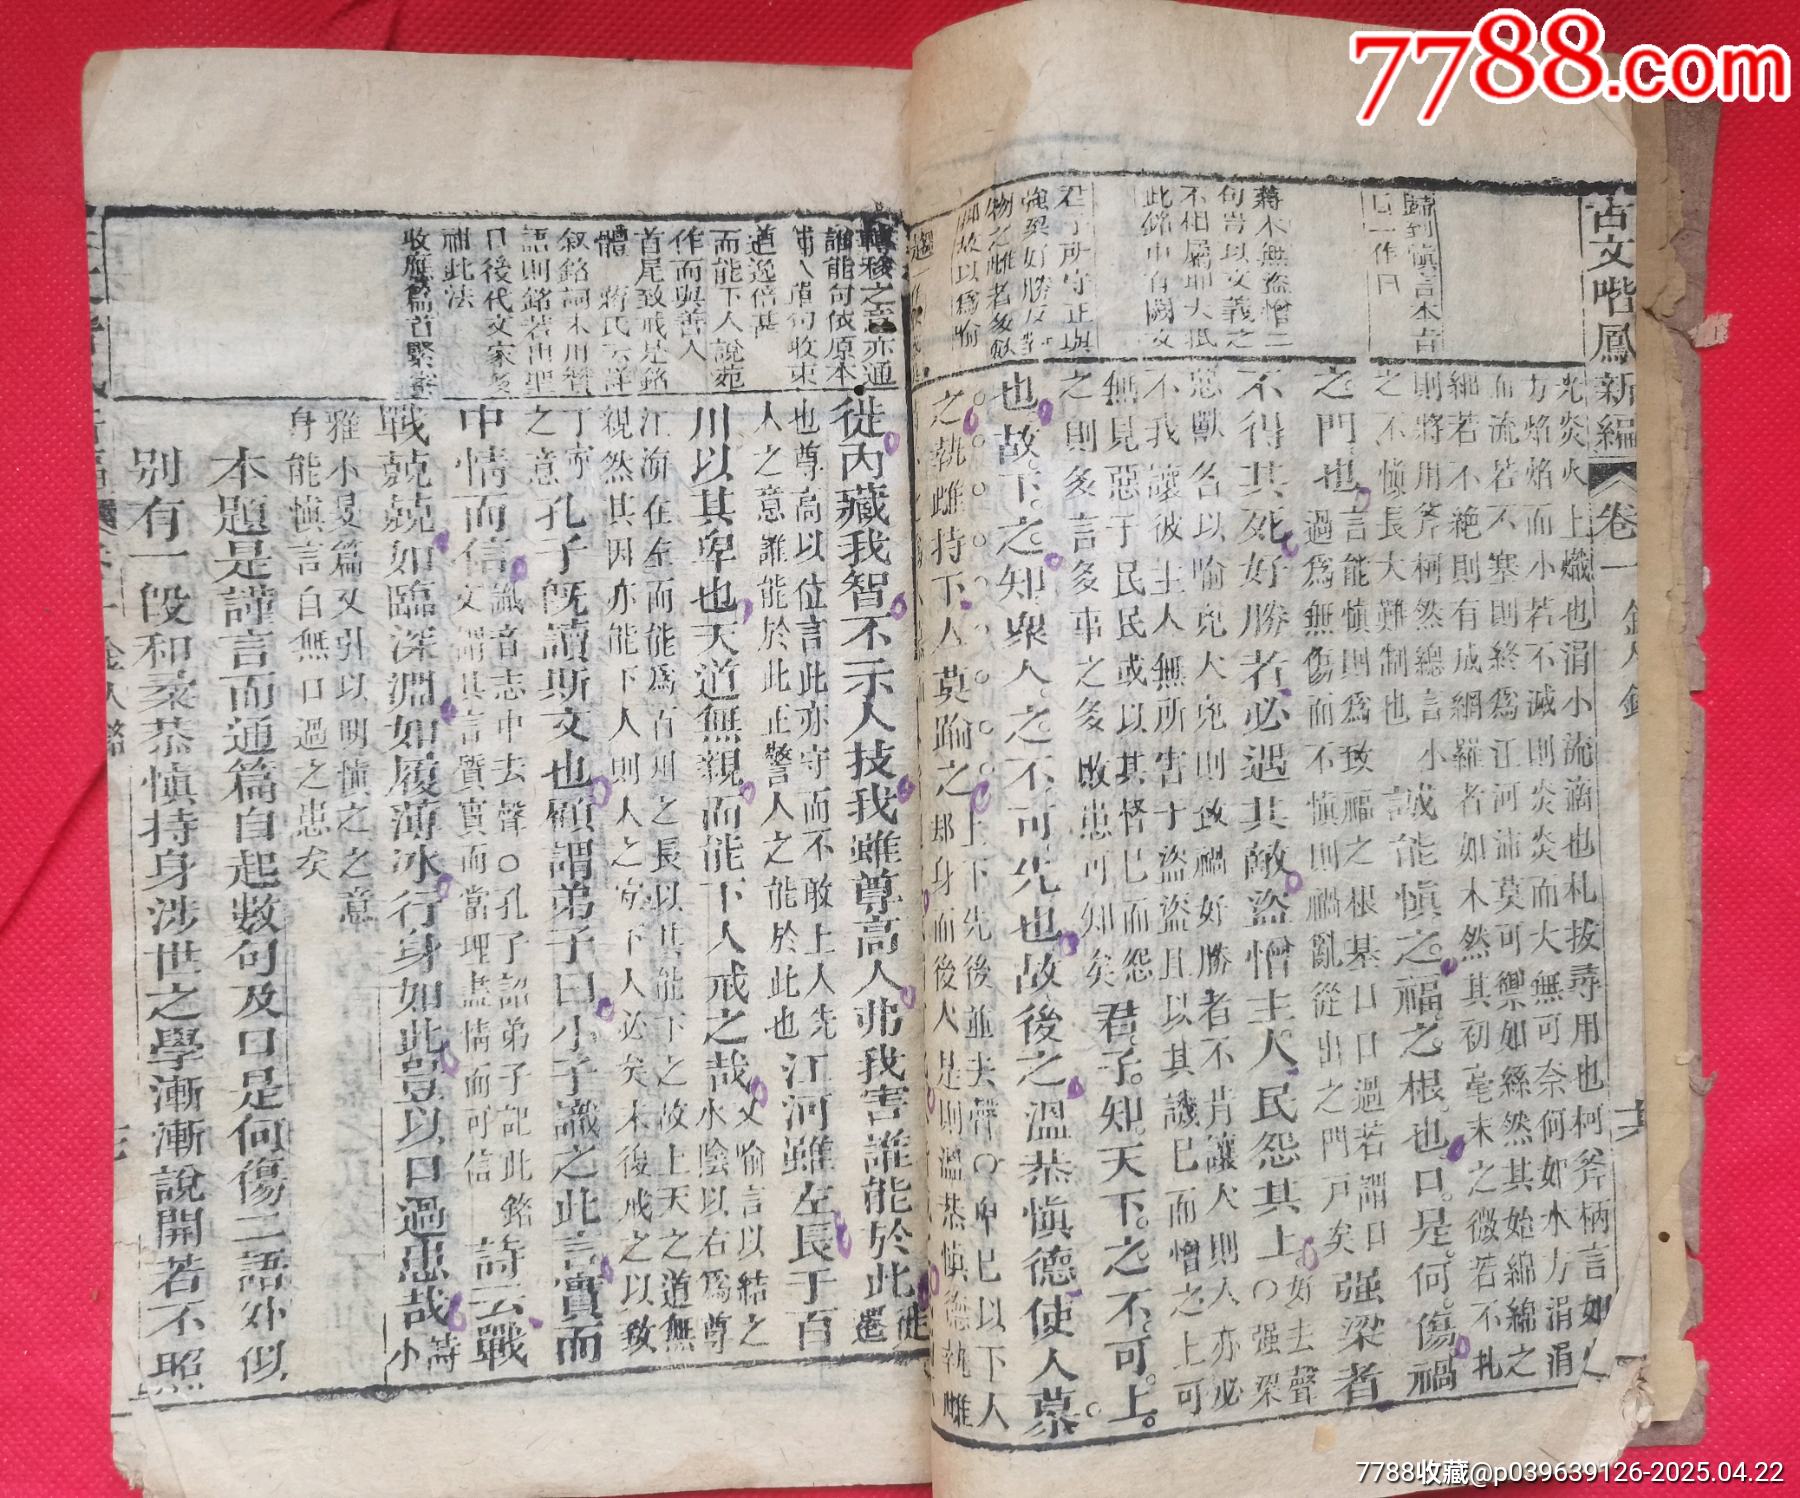 7788.com
古文喈鳳新編 卷一 金人銘
歸到慎言本旨
蔣木無盜憎二
句豈以文義之
不相屬耶大抵
此銘中有闕文
君子所守正與
強梁好勝反對
炎炎火上熾也涓小流滴也札拔尋用也柯斧柄言如火
方焰焰而小若不滅則炎炎而大無可奈何如水方涓涓
而流若不塞則終為江河沛莫可禦如絲然其始綿綿之
細若不絕則有成網羅者如木然其初毫末之微若不札
則將用斧柯然總言小
之不慎長大難制也
誠能慎之福之根也口是何傷禍
之門也
言能慎則為致福之根基口口過若謂口
過為無傷而不慎則禍亂從出之門戶矣
强梁者
不得其死好勝者必遇其敵盜憎主人民怨其上
○好去聲
○强梁
惡獸名以喻兇人兇則致禍好勝者不肯讓人則人亦必
不我讓彼主人無所害于盜盜且以其譏已而憎之上可
無見惡于民民或以其督已而怨
之則多言多事之多敗患可知矣
君子知天下之不可上
也故下之知衆人之不可先也故後之溫恭慎德使人慕
之執雌持下人莫踰之
○上下先後並去聲○卑已以下人
却身而後人是則溫恭慎德執雌
轉移之意亦通
誰能句依原本
補入單句收束
遒逸倍甚
而能下人說苑
作而與善人
首尾致戒是銘
體 蔣氏云詳
叙銘詞末用贊
語則銘若出聖
口後代文家多
祖此法
收應篇首緊密
從內藏我智不示人技我雖尊高人弗我害誰能於此
還從
也尊高以位言此亦守而不敢上人先
人之意誰能於此正警人之能於此也
江河雖左長于百
川以其卑也天道無親而能下人戒之哉
文喻言以結之
水陰以右為尊
江河在左而能為百川之長以其能下之故上天之道無
親然其因亦能下人則人之宜下人必矣末復戒之以致
丁寧
之意
孔子既讀斯文也顧謂弟子曰小子識之此言實而
中情而信
識音志中去聲○孔子詔弟子記此銘
文謂其言質實而當理盡情而可信
詩云戰
戰兢兢如臨深淵如履薄冰行身如此豈以口過患哉
詩
小
雅小旻篇又引以明慎之之意
身能慎言自無口過之患矣
本題是謹言而通篇自起數句及口是何傷二語外似
別有一段和柔恭慎持身涉世之學漸漸說開若不照
金人銘
7788收藏@p039639126-2025.04.22